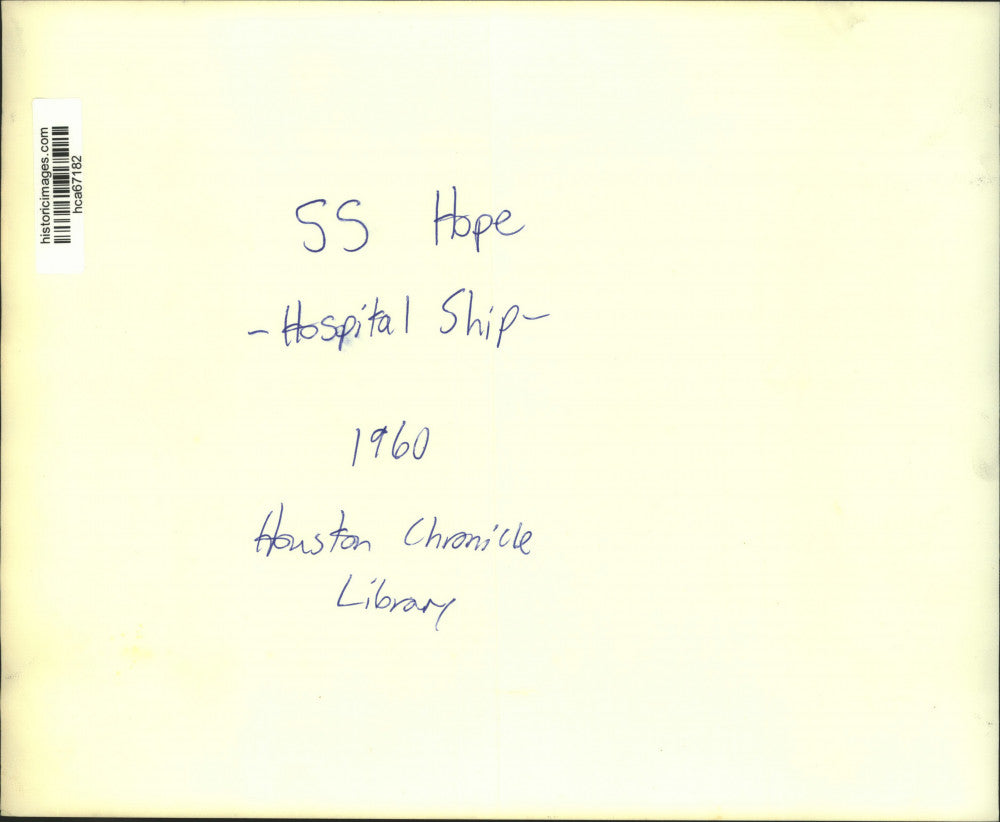 historicimages.com
hca67182
SS Hope
- Hospital Ship -
1960
Houston Chronicle
Library